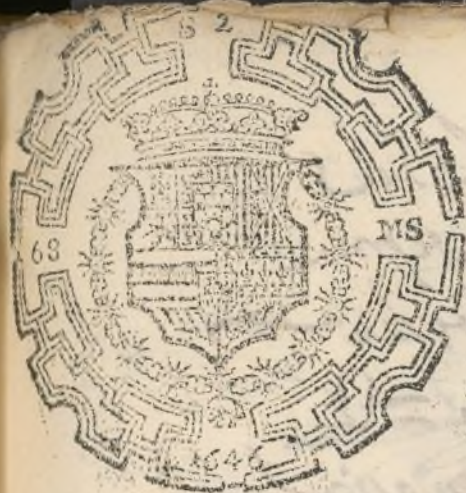 S 2
68 MS
1646